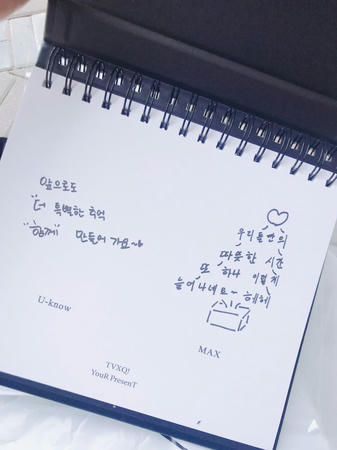 앞으로도
더 특별한 추억
"함께" 만들어 가요~
U-know
우리 둘만의
따뜻한 시간
또 하나 이렇게
늘어나네요~ 헤헤
MAX
TVXQ!
YouR PresenT